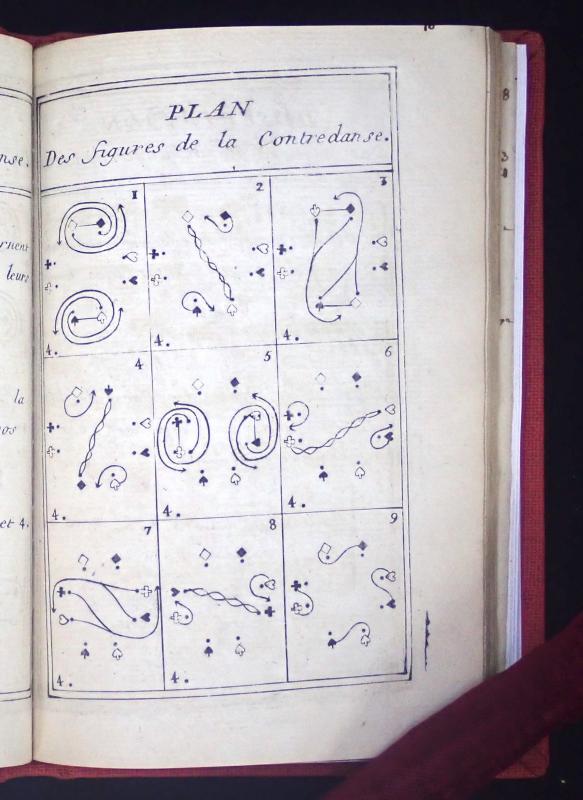 PLAN
Des figures de la Contredanse.
1
2
3
4.
4.
4.
4
5
6
4.
4.
4.
7
8
9
4.
4.
nse.
leurs
la
et 4.
8
3